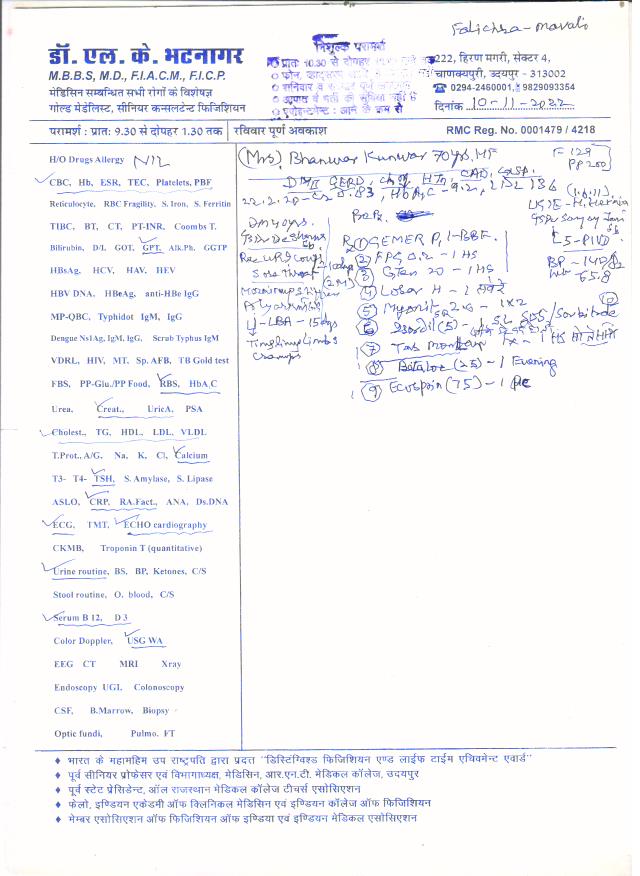 Falichra - Mavali
डॉ. एल. के. भटनागर
M.B.B.S, M.D., F.I.A.C.M., F.I.C.P.
मेडिसिन सम्बन्धित सभी रोगों के विशेषज्ञ
गोल्ड मेडेलिस्ट, सीनियर कन्सलटेन्ट फिजिशियन
निशुल्क परामर्श
प्रातः 10.30 से दोपहर
222, हिरण मगरी, सेक्टर 4,
चाणक्यपुरी, उदयपुर - 313002
0294-2460001, 9829093354
दिनांक 10-11-2022
परामर्श : प्रातः 9.30 से दोपहर 1.30 तक रविवार पूर्ण अवकाश RMC Reg. No. 0001479 / 4218
H/O Drugs Allergy NIL
CBC, Hb, ESR, TEC, Platelets, PBF
Reticulocyte, RBC Fragility, S. Iron, S. Ferritin
TIBC, BT, CT, PT-INR, Coombs T.
Bilirubin, D/I, GOT, GPT, Alk.Ph. GGTP
HBsAg, HCV, HAV, HEV
HBV DNA, HBeAg, anti-HBe IgG
MP-QBC, Typhidot IgM, IgG
Dengue Ns1Ag, IgM, IgG, Scrub Typhus IgM
VDRL, HIV, MT, Sp. AFB, TB Gold test
FBS, PP-Glu./PP Food, RBS, HbA,C
Urea, Creat., UricA, PSA
Cholest., TG, HDL, LDL, VLDL
T.Prot., A/G, Na, K, Cl, Calcium
T3- T4- TSH, S. Amylase, S. Lipase
ASLO, CRP, RA.Fact., ANA, Ds.DNA
ECG, TMT, ECHO cardiography
CKMB, Troponin T (quantitative)
Urine routine, BS, BP, Ketones, C/S
Stool routine, O. blood, C/S
Serum B 12, D 3
Color Doppler, USG WA
EEG CT MRI Xray
Endoscopy UGI, Colonoscopy
CSF, B.Marrow, Biopsy
Optic fundi, Pulmo. FT
(Mrs) Bhanwar Kunwar 70 yrs, HF
F = 129
PP 200
DM II GERD, HTN, CAD
22.2.20 - 0.83, HbA,C - 9.2, LDL 136
L5-PIVD
BP - 140/
65.8
DM 20 yrs.
Sore throat
LBA - 15 days
Tingling limbs
cramps
Rx ① GEMER P, 1 - BBF
② FPG 0.2 - 1 HS
③ 20 - 1 HS
④ Lobar H - 1 सवेरे
⑤ 2.6 - 1x2
⑥ (5) - 1 SL SOS / Sorbitrate
⑦ - 1 HS
⑧ Betaloc (25) - 1 Evening
⑨ Ecosprin (75) - 1 PC
भारत के महामहिम उप राष्ट्रपति द्वारा प्रदत्त "डिस्टिंग्विश्ड फिजिशियन एण्ड लाईफ टाईम एचिवमेण्ट एवार्ड"
पूर्व सीनियर प्रोफेसर एवं विभागाध्यक्ष, मेडिसिन, आर.एन.टी. मेडिकल कॉलेज, उदयपुर
पूर्व स्टेट प्रेसिडेन्ट, ऑल राजस्थान मेडिकल कॉलेज टीचर्स एसोसिएशन
फेलो, इण्डियन एकेडमी ऑफ क्लिनिकल मेडिसिन एवं इण्डियन कॉलेज ऑफ फिजिशियन
मेम्बर एसोसिएशन ऑफ फिजिशियन ऑफ इण्डिया एवं इण्डियन मेडिकल एसोसिएशन